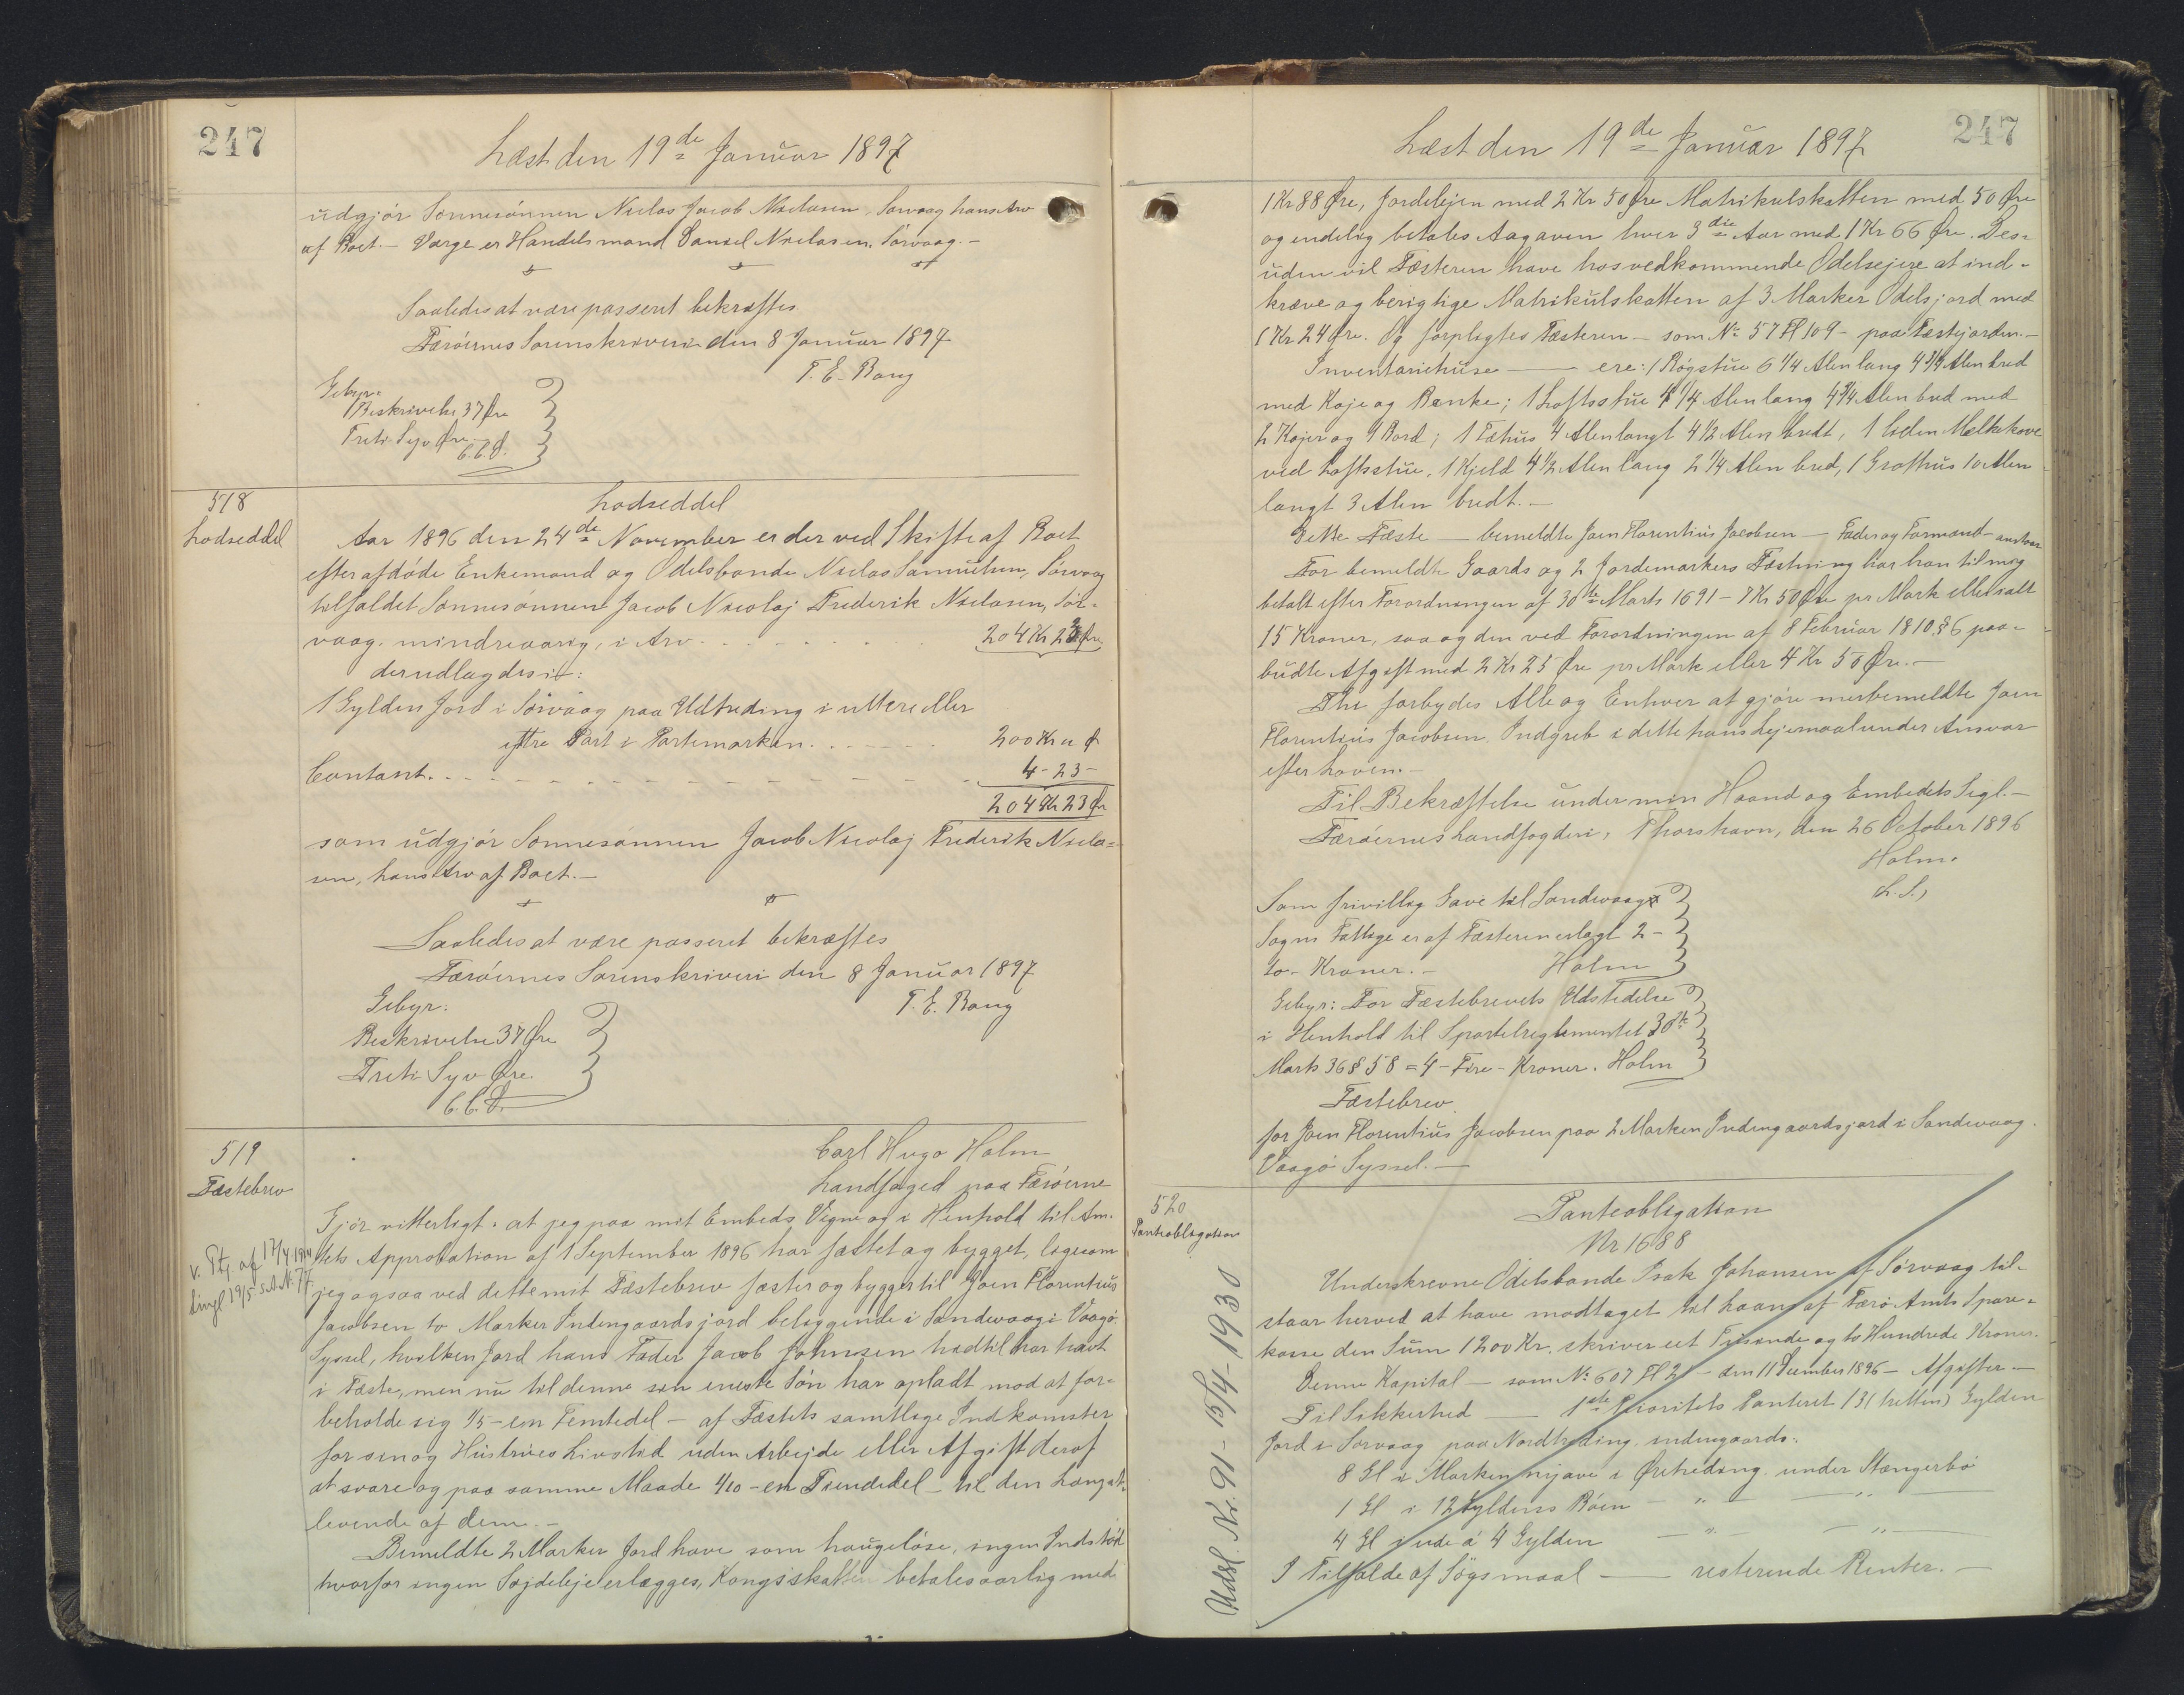 247
Læst den 19de Januar 1897
udgjör Sönnesönnen Niclas Jacob Niclasen, Sörvaag hans Arv
af Boet. - Værge er Handelsmand Daniel Niclasen, Sörvaag. -
Saaledes at være passeret bekræftes
Færöernes Sorenskriveri den 8 Januar 1897
T. E. Bang
Gebyr:
Beskrivelse 37 Øre
Treti Syv Øre
C.C.D.
518
Lodseddel
Lodseddel
Aar 1896 den 24de November er der ved Skifte af Boet
efter afdöde Enkemand og Odelsbonde Niclas Samuelsen, Sörvaag
tilfaldet Sönnesönnen Jacob Nicolaj Frederik Niclasen, Sör-
vaag, mindreaarig, i Arv . . . . . 204 Kr 23 Øre
der udlagdes i:
1 Gylden Jord i Sörvaag paa Udtreding i uttere eller
eftre Part i Partemarken . . . . . 200 Kr " Ø
Contant. - - - - - - - - 4 - 23 -
204 Kr 23 Ør
som udgjör Sönnesönnen Jacob Nicolaj Frederik Nicla-
sen, hans Arv af Boet. -
Saaledes at være passeret bekræftes
Færöernes Sorenskriveri den 8 Januar 1897
Gebyr:
T. E. Bang
Beskrivelse 37 Øre
Treti Syv Øre.
C.C.D.
519
Fæstebrev
Carl Hugo Holm
Landfoged paa Færöerne
Gjör vitterligt: at jeg paa mit Embeds Vegne og i Henhold til Am-
tets Approbation af 1 September 1896 har fæstet og bygget, ligesom
v. Skj. af 17/4 1914
tingl 19/5 s.A. N. 77.
jeg ogsaa ved dette mit Fæstebrev fæster og bygger til Joen Florentius
Jacobsen to Marker Indengaardsjord beliggende i Sandevaag i Vaagö
Syssel, hvilken Jord hans Fader Jacob Johnsen hidtil har havt
i Fæste, men nu til denne sin eneste Sön har opladt mod at for-
beholde sig 1/5 - en Femtedel - af Fæstets samtlige Indkomster
for sin og Hustrues Livstid uden Arbejde eller Afgift deraf
at svare og paa samme Maade 1/10 - en Tiendedel - til den længst-
levende af dem. -
Bemeldte 2 Marker Jord have som haugelöse, ingen Indstöd
hvorfor ingen Söjdeleje erlægges, Kongsskatten betales aarlig med
Læst den 19de Januar 1897
247
1 Kr 88 Øre, Jordelejen med 2 Kr 50 Øre Matrikulskatten med 50 Øre
og endelig betales Aagaven hver 3die Aar med 1 Kr 66 Øre. Des-
uden vil Fæsteren have hos vedkommende Odelsejere at ind-
kræve og berigtige Matrikulskatten af 3 Marker Odelsjord med
1 Kr 24 Øre. Og forpligtes Fæsteren - som No 57 Fl 109 - paa Fæstejorden. -
Inventariehuse - ere: 1 Røgstue 6 1/4 Alen lang 4 3/4 Alen bred
med Koje og Bænke; 1 Loftsstue 4 1/4 Alen lang 4 3/4 Alen bred med
2 Kojer og 1 Bord; 1 Fæhus 4 Alen langt 4 1/2 Alen bredt, 1 liden Melkekove
ved Loftsstue, 1 Hjeld 4 1/2 Alen lang 2 1/4 Alen bred, 1 Grothus 10 Alen
langt 3 Alen bredt. -
Dette Fæste - bemeldte Joen Florentius Jacobsen - Fader og Formand - ansvar
For bemeldte Gaards og 2 Jordemarkers Fæstning har han til mig
betalt efter Forordningen af 30te Marts 1691 - 7 Kr 50 Øre pr Mark eller ialt
15 Kroner, saa og den ved Forordningen af 8 Februar 1810 § 6 paa-
budte Afgift med 2 Kr 25 Øre pr Mark eller 4 Kr 50 Øre. -
Thi forbydes Alle og Enhver at gjöre merbemeldte Joen
Florentius Jacobsen Indgreb i dette hans Lejemaal under Ansvar
efter Loven. -
Til Bekræftelse under min Haand og Embedets Segl. -
Færöernes Landfogderi, Thorshavn, den 26 October 1896
Holm.
L.S.
Som frivillig Gave til Sandevaags
Sogns Fattige er af Fæsteren erlagt 2 -
to - Kroner. - Holm
Gebyr: For Fæstebrevets Udstedelse
i Henhold til Sportelreglementet 30te
Marts 36 § 58 = 4 - Fire - Kroner. Holm
Fæstebrev
for Joen Florentius Jacobsen paa 2 Marker Indengaardsjord i Sandevaag.
Vaagö Syssel. -
520
Panteobligation
Panteobligation
Nr 1688
Underskrevne Odelsbonde Isak Johansen af Sörvaag til-
staar herved at have modtaget til Laans af Færö Amts Spare-
kasse den Sum 1200 Kr. skriver eet Tusinde og to Hundrede Kroner.
Denne Kapital - som No 607 Fl 21 - den 11 December 1896 - Afgifter. -
Til Sikkerhed - 1ste Prioritets Panteret 13 (tretten) Gylden
Jord i Sörvaag paa Nordtreding indengaards:
8 Gl i Marken nijave i Øretreding under Stængerbö
1 Gl i 12 Gyldens Böen - " - - " -
4 Gl inde á 4 Gylden - " - - " -
I Tilfælde af Sögsmaal - resterende Renter. -
Udsl. Nr. 91 - 15/4 - 1930